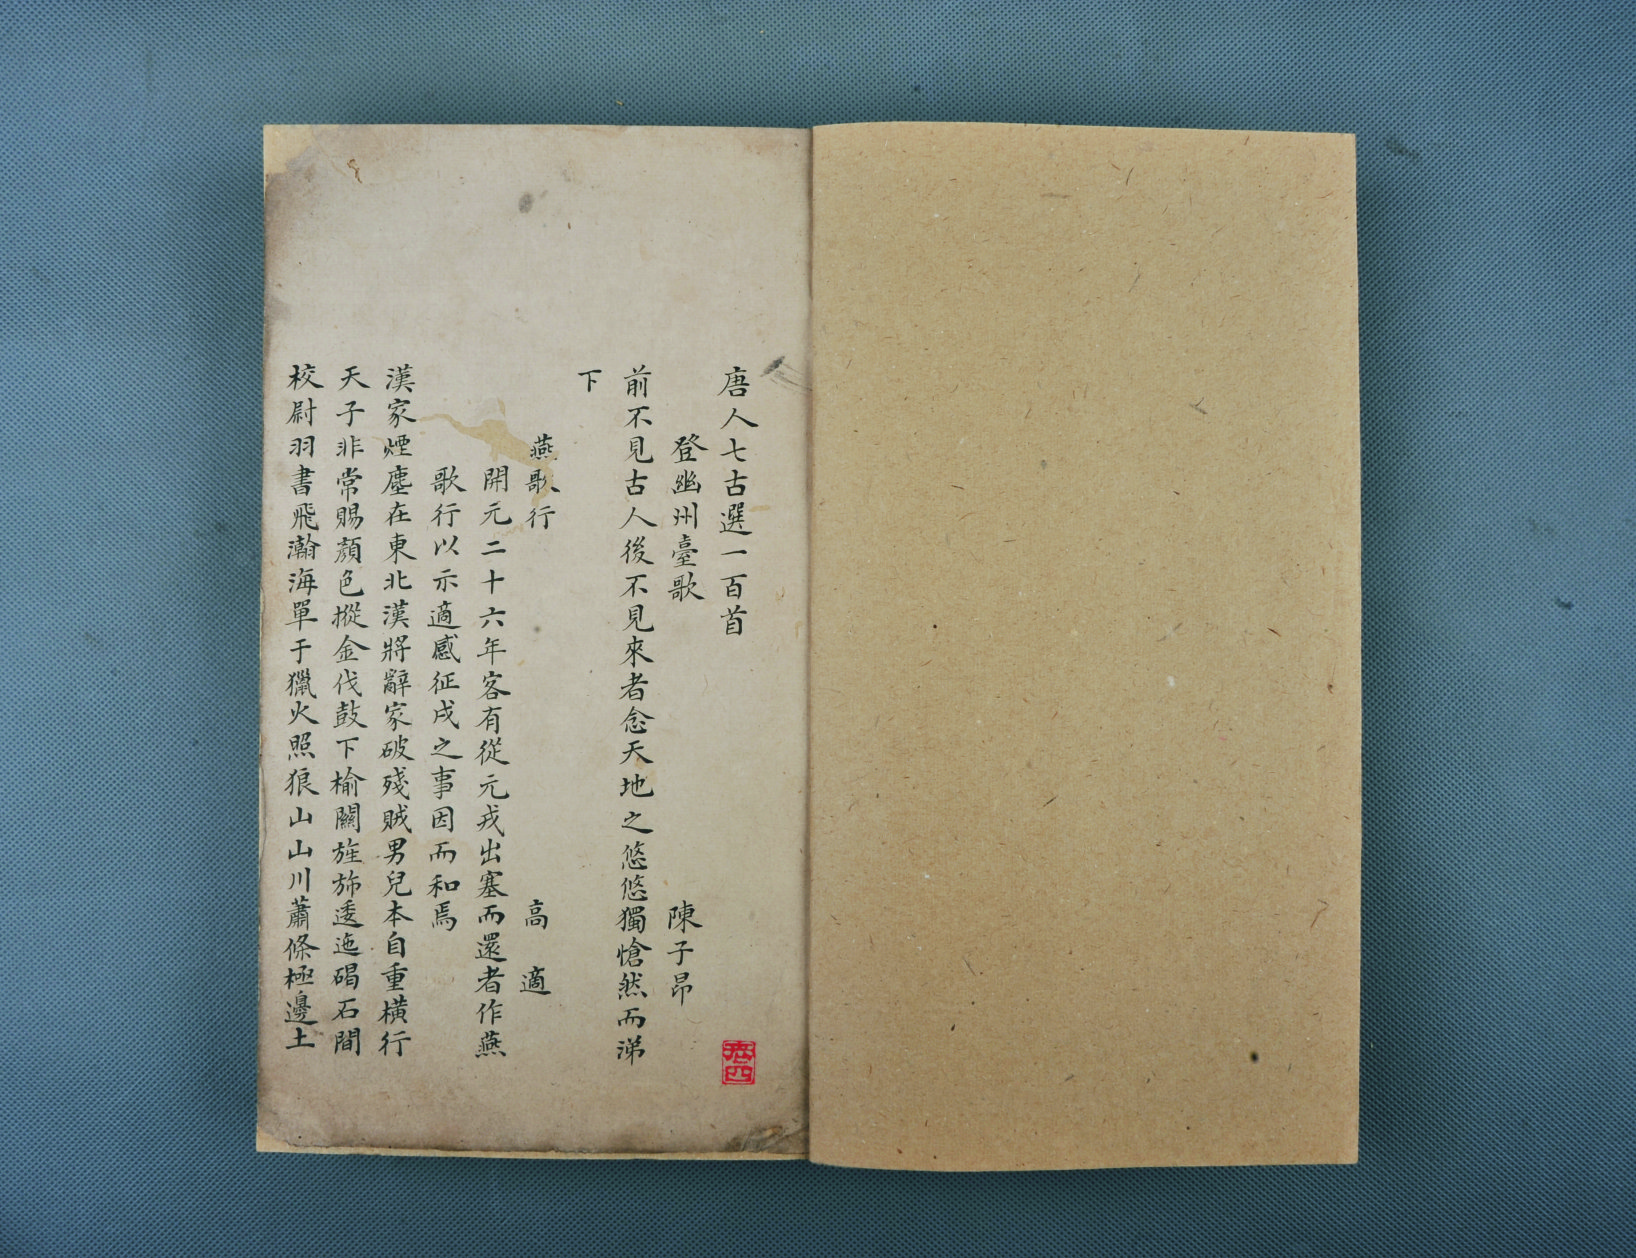 唐人七古選一百首
登幽州臺歌 陳子昂
前不見古人後不見來者念天地之悠悠獨愴然而涕
下
燕歌行 高適
開元二十六年客有從元戎出塞而還者作燕
歌行以示適感征戍之事因而和焉
漢家煙塵在東北漢將辭家破殘賊男兒本自重橫行
天子非常賜顏色摐金伐鼓下榆關旌斾逶迤碣石間
校尉羽書飛瀚海單于獵火照狼山山川蕭條極邊土